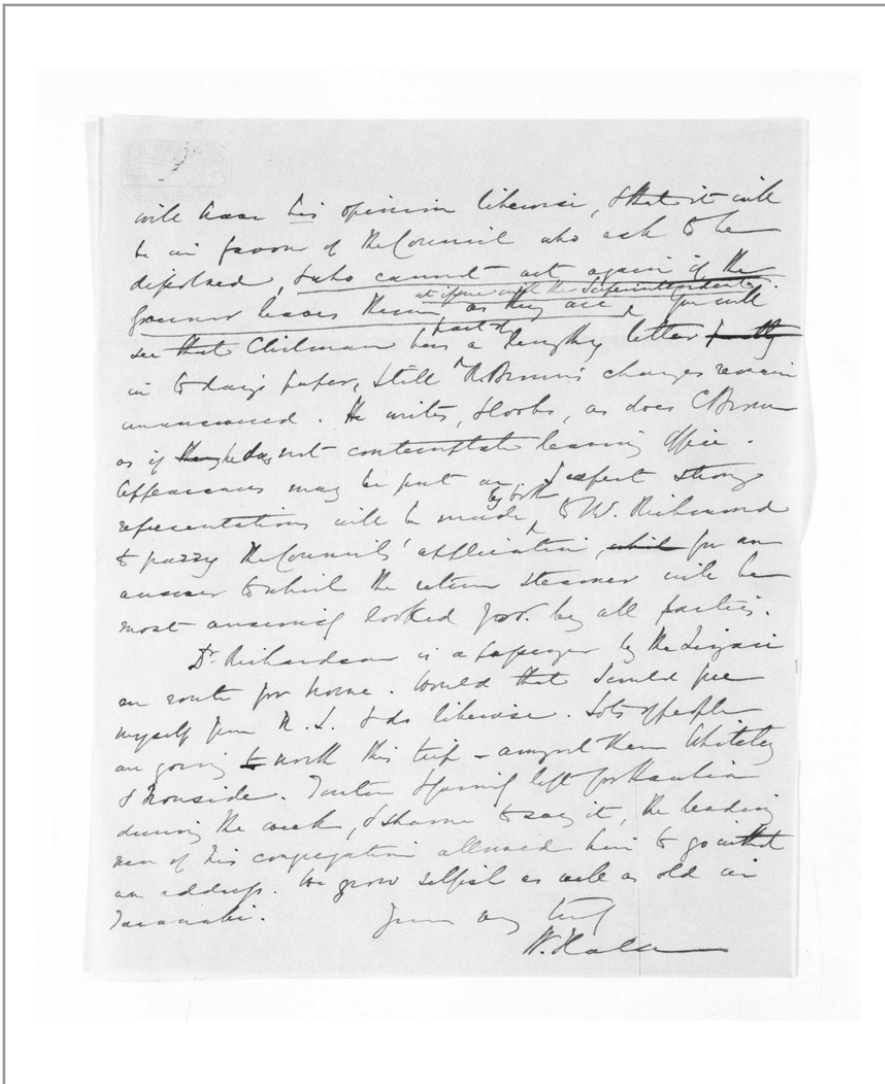 will hear his opinion likewise, & that it will
be in favour of the Council who ask to be
dissolved, & who cannot act again if the
at issue with the Superintendent.
Governor leaves them, as they are, You will
part of
see that Chilman has a lengthy letter
in to day's paper, still R Brown's charges remain
unanswered. He writes, & looks, as does C Brown
as if he does not contemplate leaving office.
Appearances may be put on, I expect strong
by both
representations will be made, to W. Richmond
to parry the Councils' application, which for an
answer to which the return steamer will be
most anxiously looked for by all parties.
Dr. Richardson is a passenger by the
en route for home. Would that I could free
myself from N.Z. & do likewise. Lots of people
are going to north this trip - amongst them Whiteley
& Ironside. & family left for
during the week, & shame to say it, the leading
men of his congregation allowed him to go without
an address. We grow selfish as well as old in
Taranaki.
Yours very truly
W. Halse